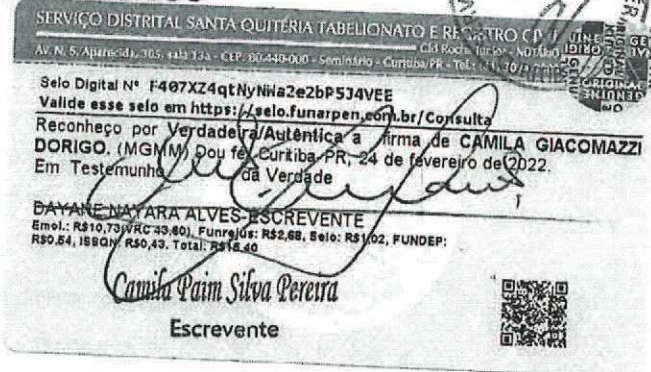 SERVIÇO DISTRITAL SANTA QUITÉRIA TABELIONATO E REGISTRO CIVIL
Av. N. S. Aparecida, 305, sala 13a - CEP: 80.440-000 - Seminário - Curitiba/PR - Tel.:
Selo Digital Nº F407XZ4qtNyNWa2e2bP5J4VEE
Valide esse selo em https://selo.funarpen.com.br/Consulta
Reconheço por Verdadeira/Autêntica a firma de CAMILA GIACOMAZZI
DORIGO. (MGMM) Dou fé. Curitiba-PR, 24 de fevereiro de 2022.
Em Testemunho da Verdade
DAYANE NAYARA ALVES-ESCREVENTE
Emol.: R$10,73(VRC 43,60), Funrejus: R$2,68, Selo: R$1,02, FUNDEP:
R$0,54, ISSQN: R$0,43. Total: R$15,40
Camila Paim Silva Pereira
Escrevente